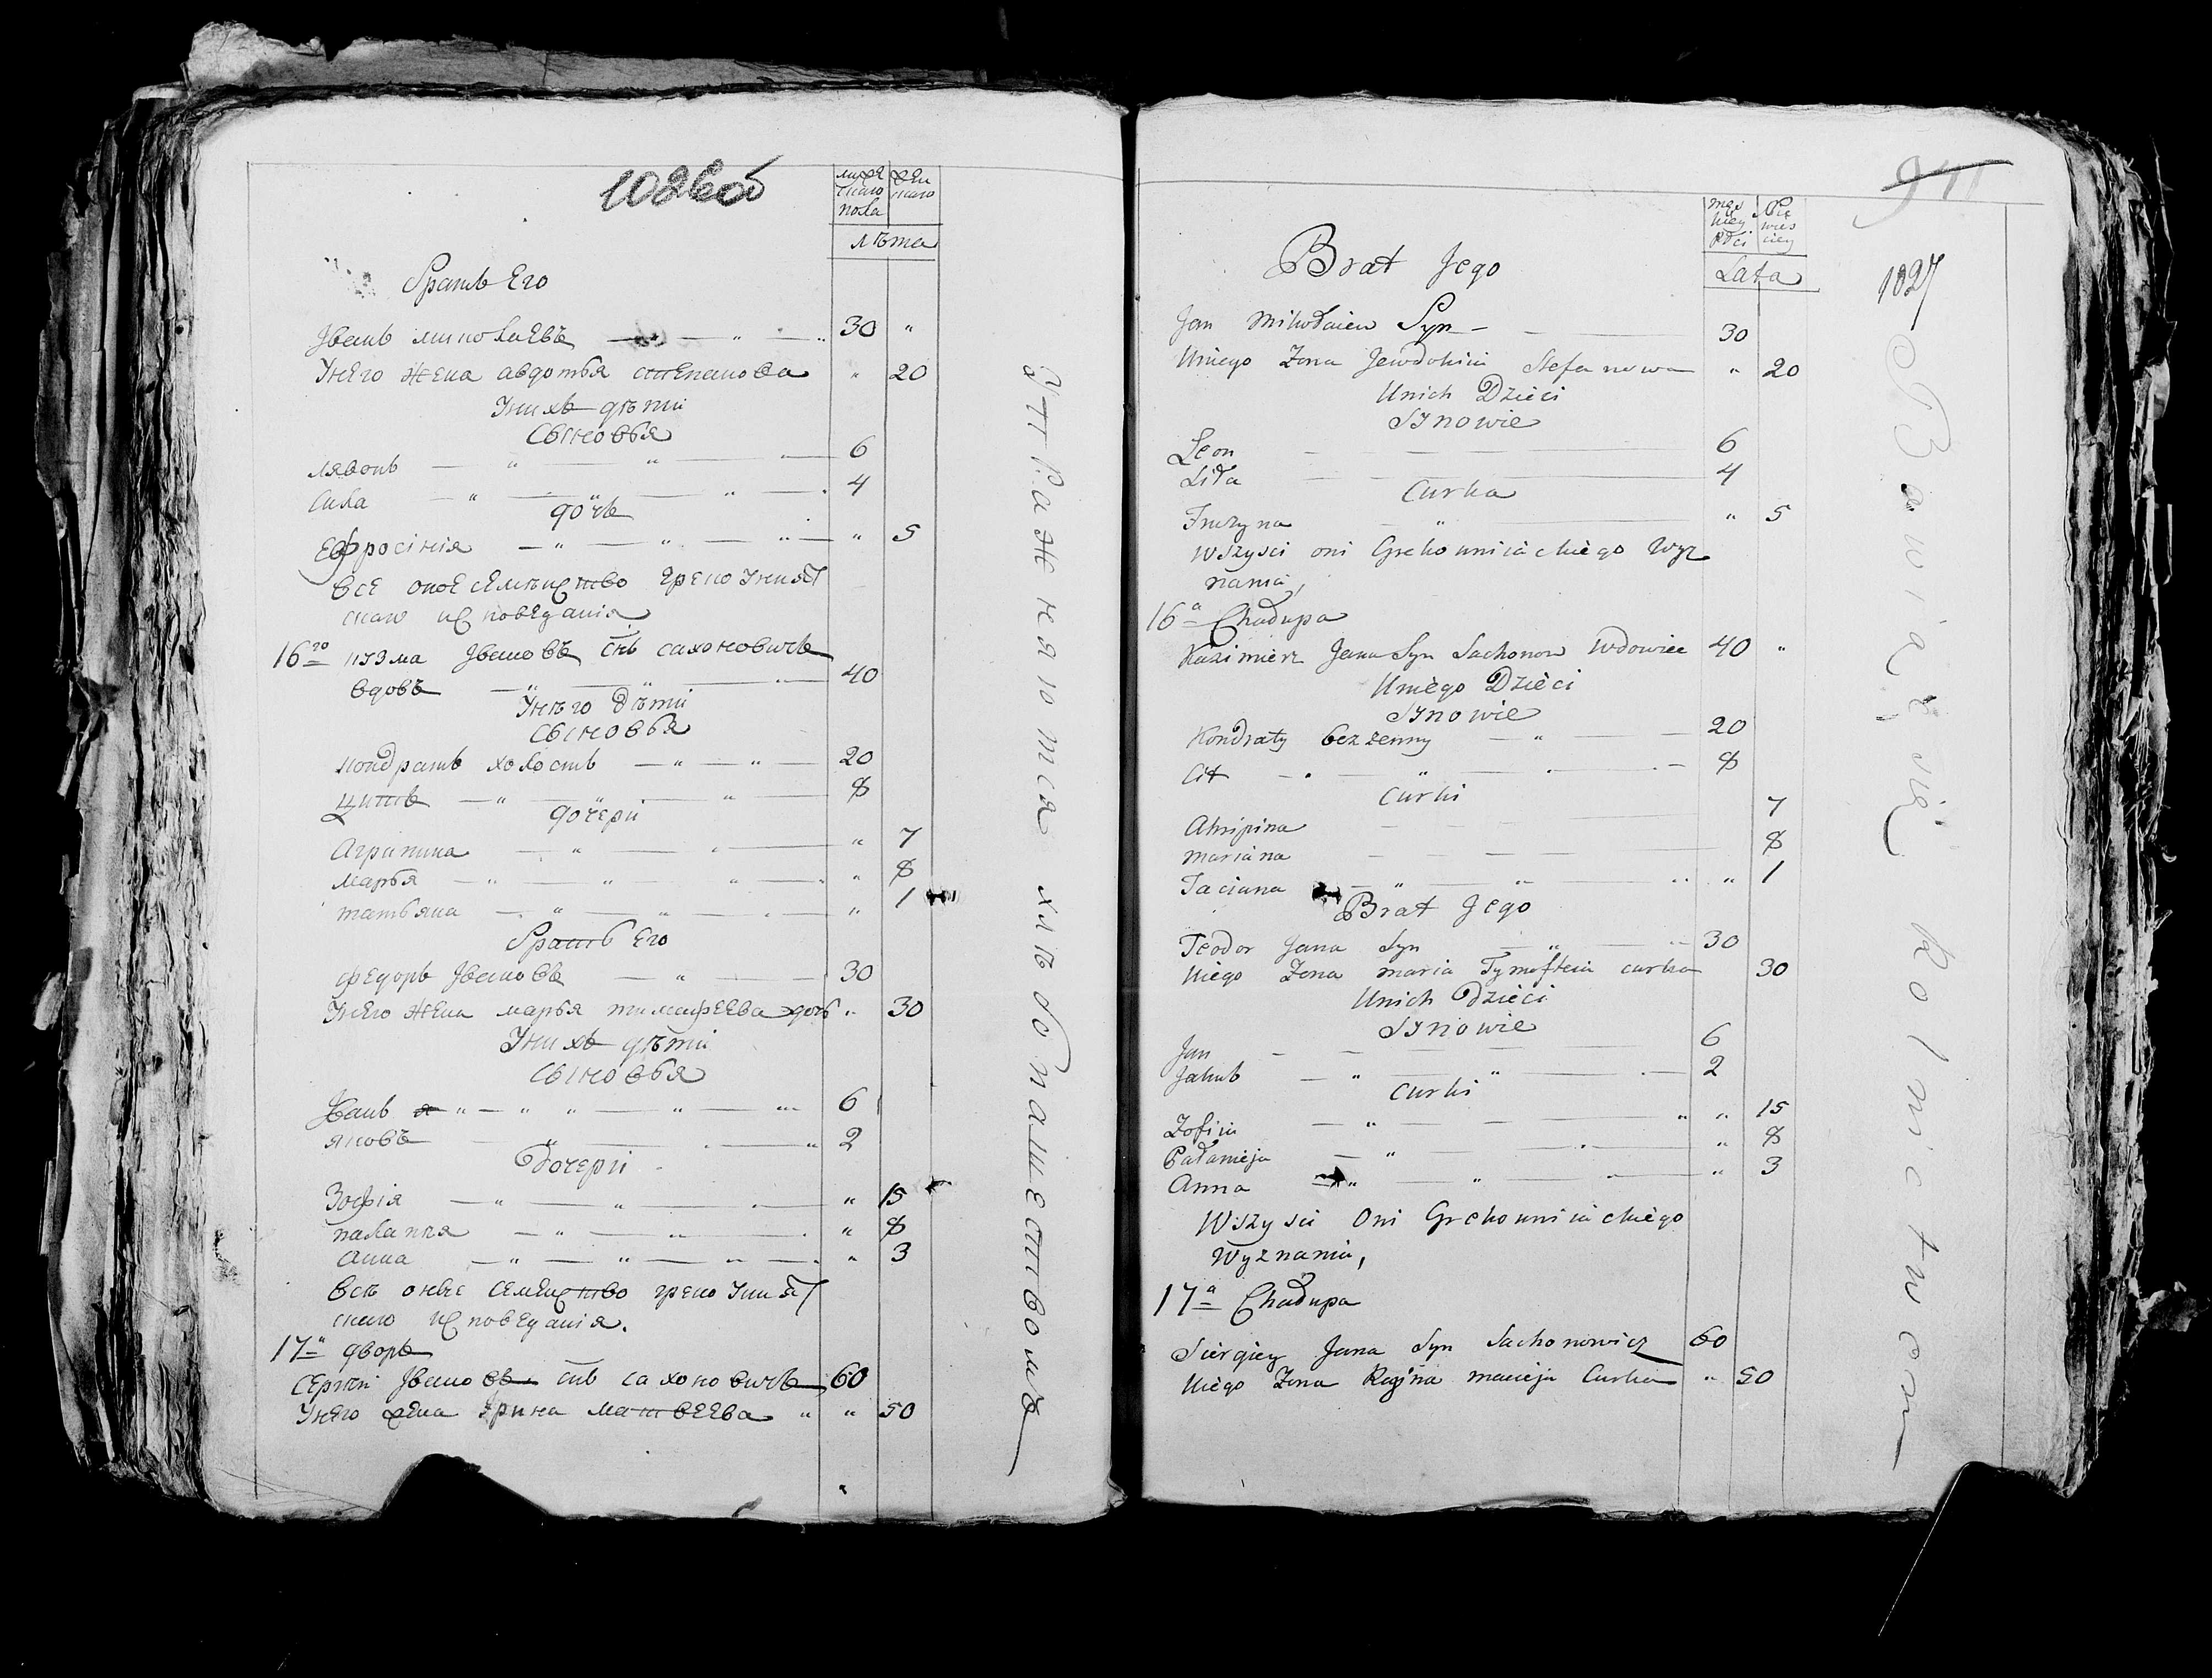 мужескаго пола
женскаго
лѣта
братъ Его
Іванъ миколаевъ 30 "
Унего жена авдотья степанова " 20
Унихъ дѣти
Сыновья
лявонъ 6
сила 4
дочь
Ефросінія " 5
Все оное семейство греко Уният
скаго исповеданія
16го кузма Івановъ снъ сахоновичъ
вдовъ 40
Унего дѣти
Сыновья
кондратъ холостъ 20
цитъ 8
дочери
Аграпина " 7
марья " 8
татьяна " 1
братъ Его
федоръ Івановъ 30
Унего жена марья тимафеева дочь " 30
Унихъ дѣти
Сыновья
Іванъ 6
яковъ 2
Дочери
Зофія " 15
паланея " 8
анна " 3
Всѣ оные семейство греко Уният
скаго исповеданія.
17а дворъ
Сергѣй Івановъ снъ сахоновичъ 60
Унего жена Ерина матвеева " " 50
Упражняются хлѣбопашествомъ
1027
męs kiey płci
Nie wies ciey
Lata
Brat Jego
Jan Mikołaiew Syn 30
Uniego Zona Jewdokiia Stefanowa " 20
Unich Dzieci
Synowie
Leon 6
Siła 4
Curka
Fruzyna " 5
Wszysci oni Grekouniiackiego Wyz
nania,
16a Chałupa
Kazimierz Jana Syn Sachonow Wdowiec 40 "
Uniego Dzieci
Synowie
Kondraty bezżenny 20
Cit 8
Curki
Ahripina 7
Mariana 8
Taciana " 1
Brat Jego
Teodor Jana Syn 30
Uiego Zona maria Tymofteia curka 30
Unich Dzieci
Synowie
Jan 6
Jakub 2
Curki
Zofiia " 15
Pałanieja " 8
Anna " 3
Wszysci Oni Grekouniiackiego
Wyznania,
17a Chałupa
Siergiey Jana Syn Sachonowicz 60
Uiego Zona Regina macieja Curka " 50
Bawią się Rolnictwem